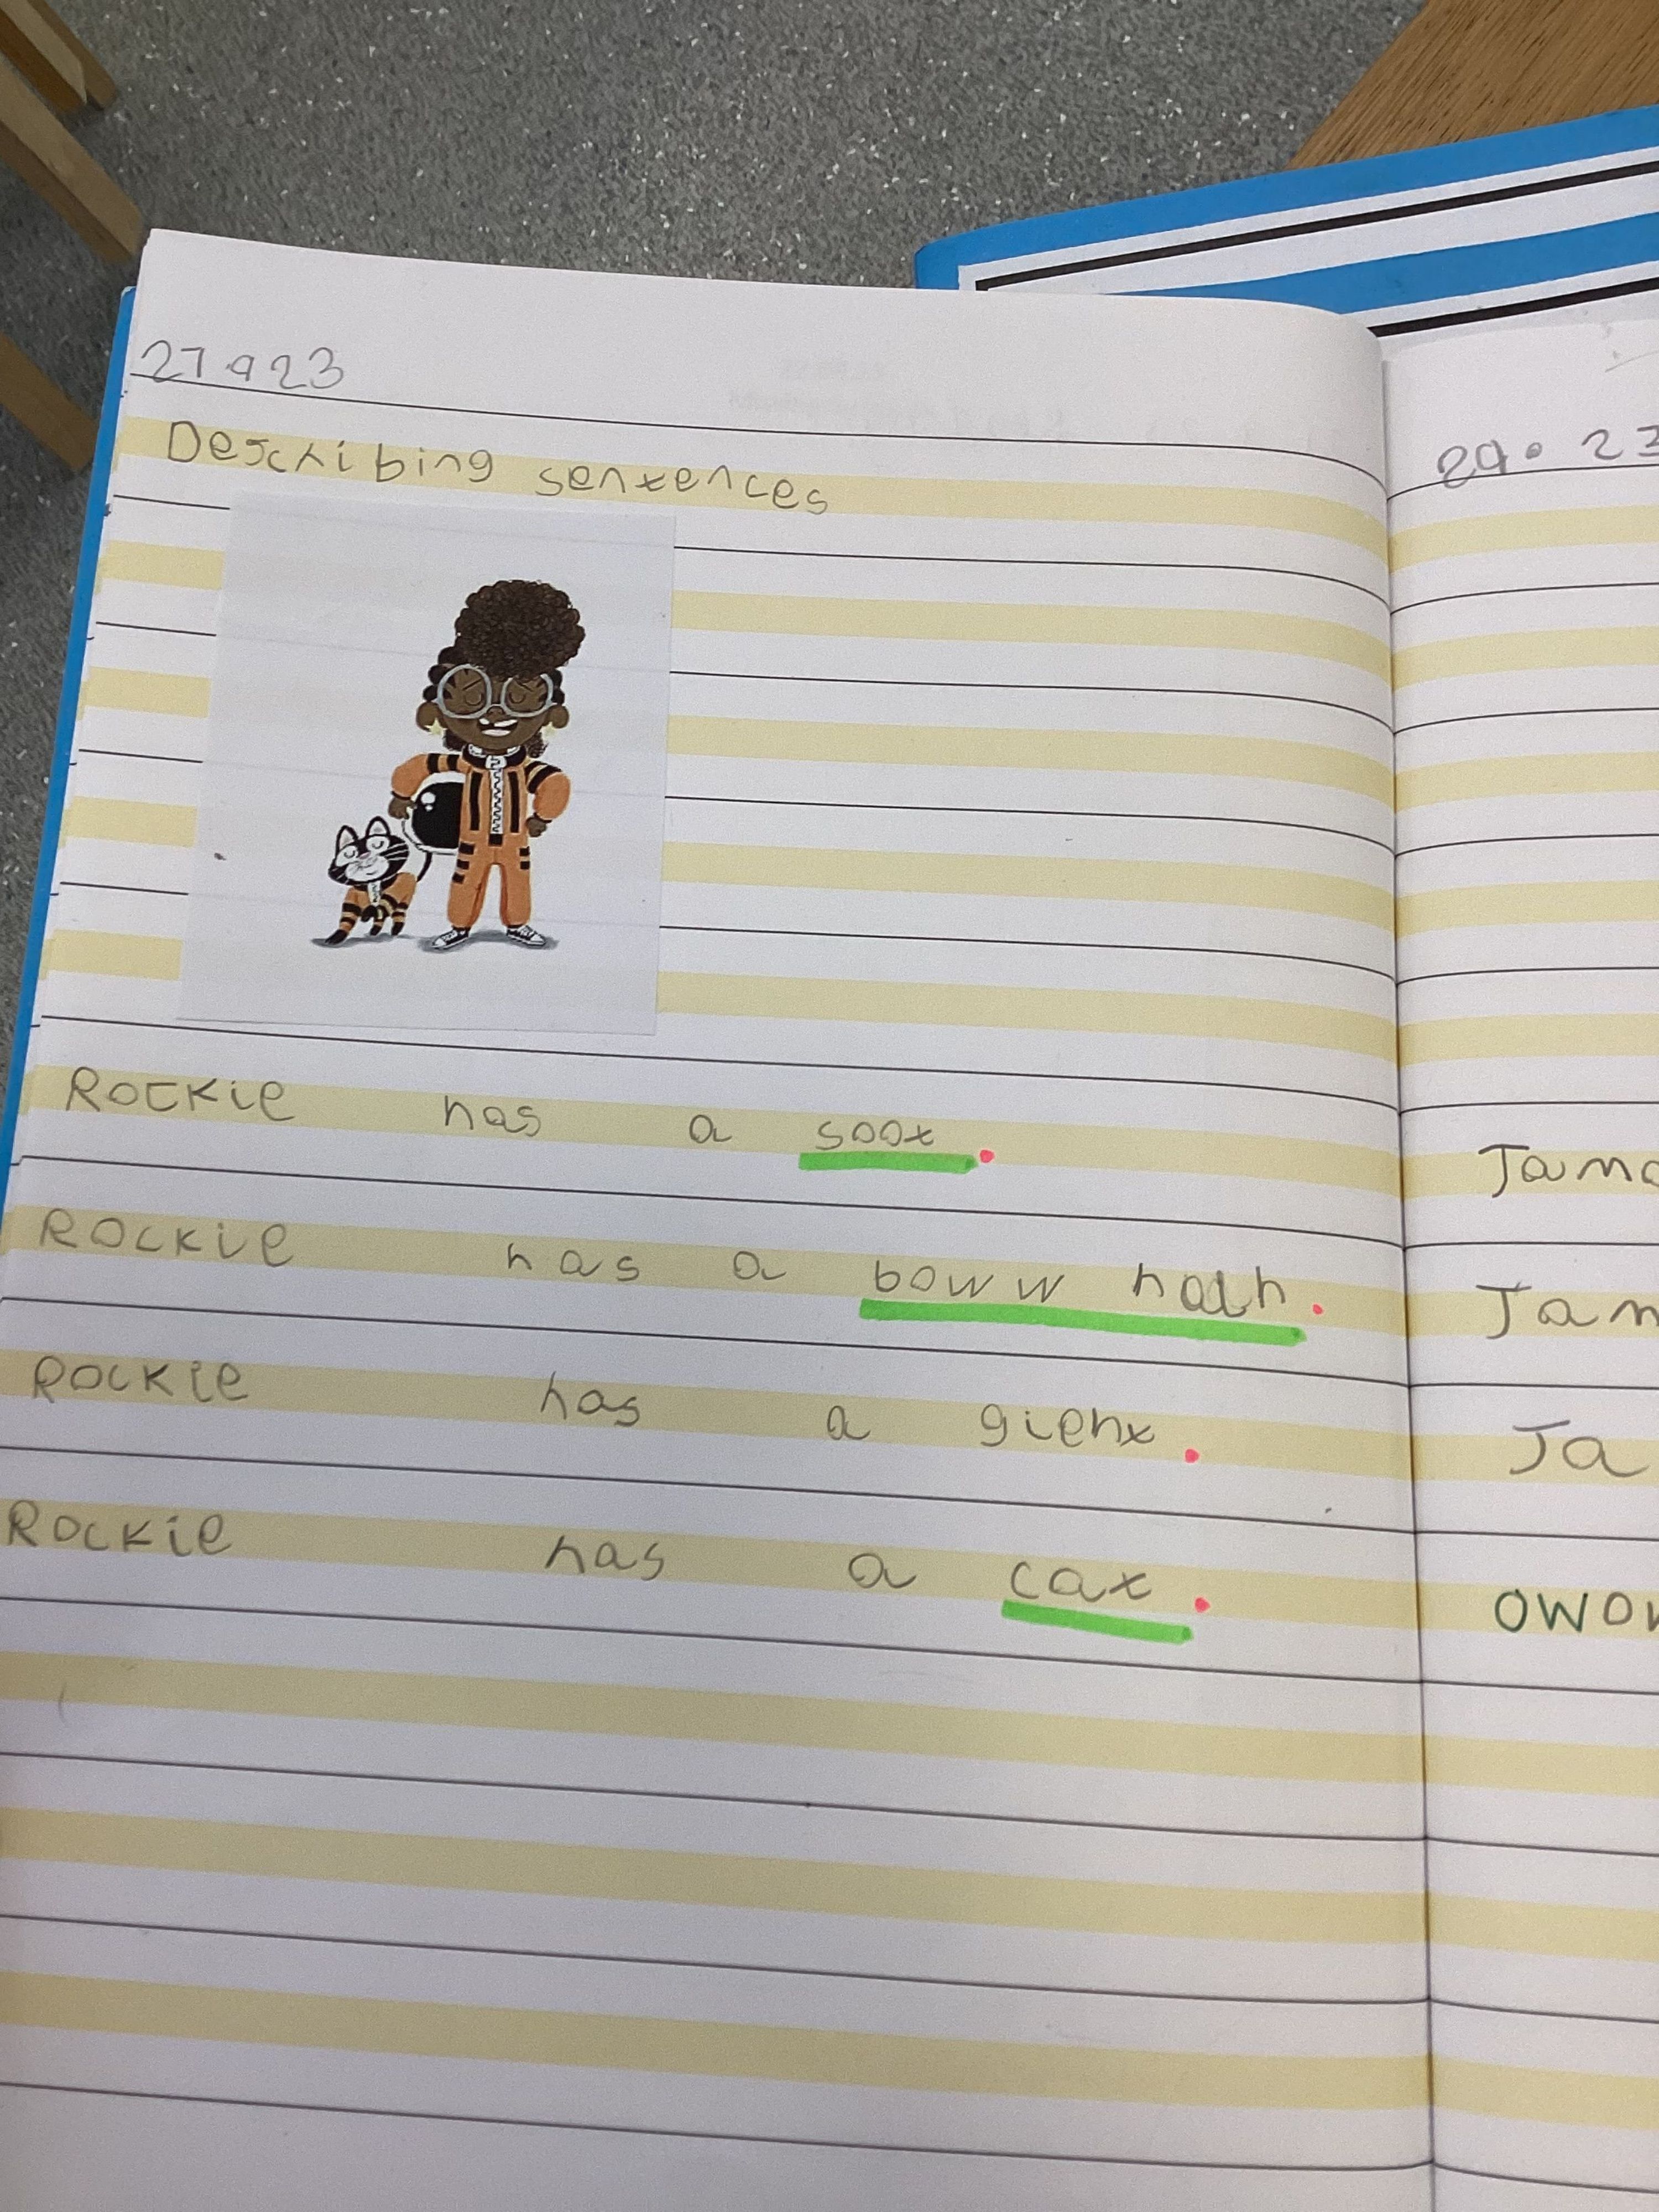 27 9 23
Describing sentences
Rockie has a soot.
Rockie has a boww hath.
Rockie has a gient.
Rockie has a cat.
29. 23
Jama
Jam
Ja
owow